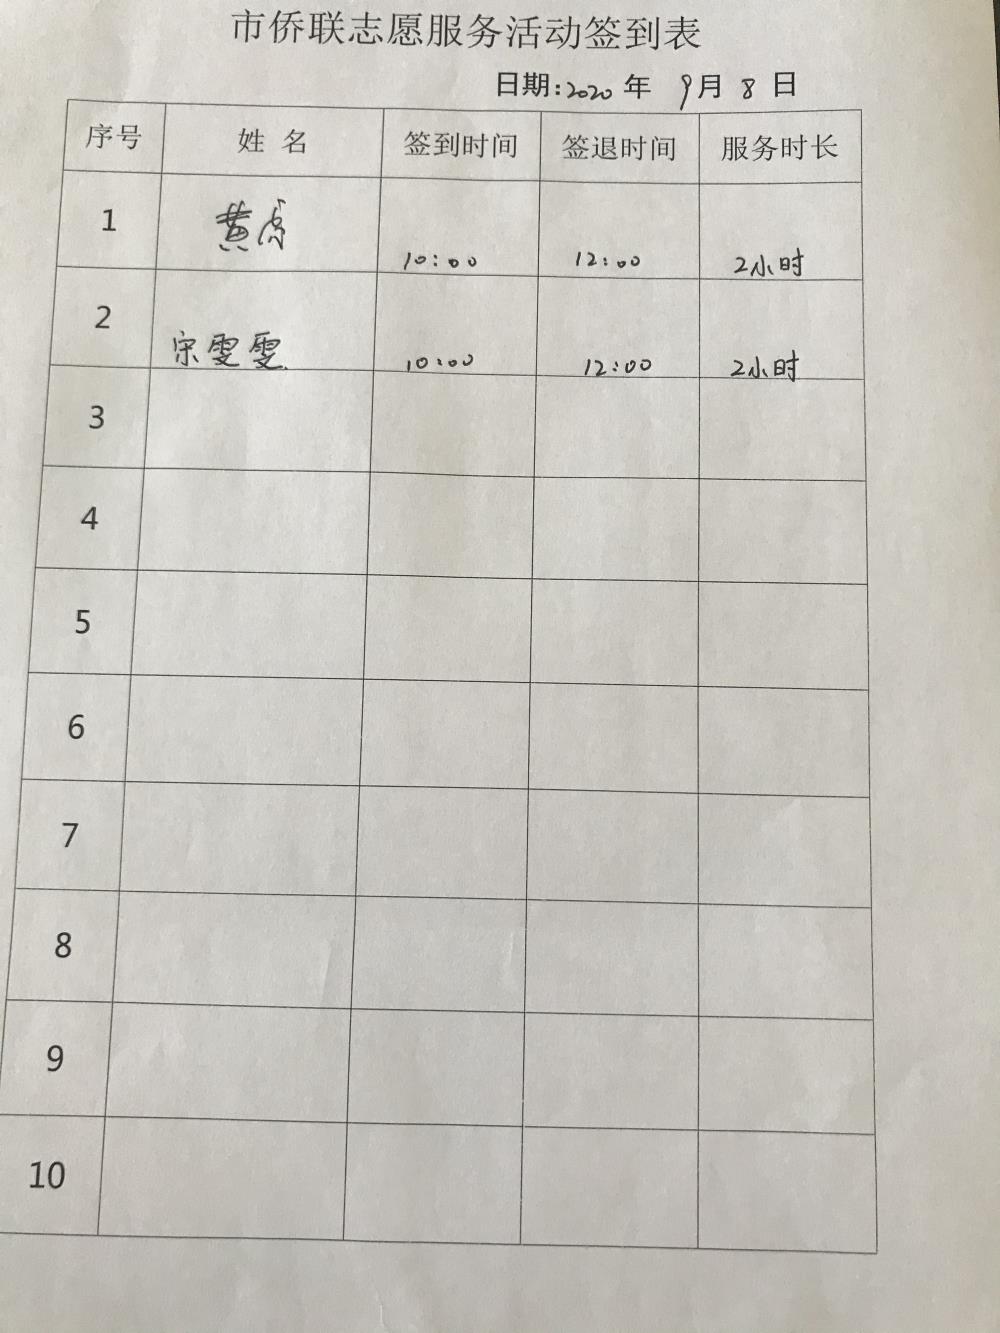 市侨联志愿服务活动签到表
日期:2020 年 9月 8 日
序号 姓 名 签到时间 签退时间 服务时长
1 黄 10:00 12:00 2小时
2 宋雯雯 10:00 12:00 2小时
3
4
5
6
7
8
9
10